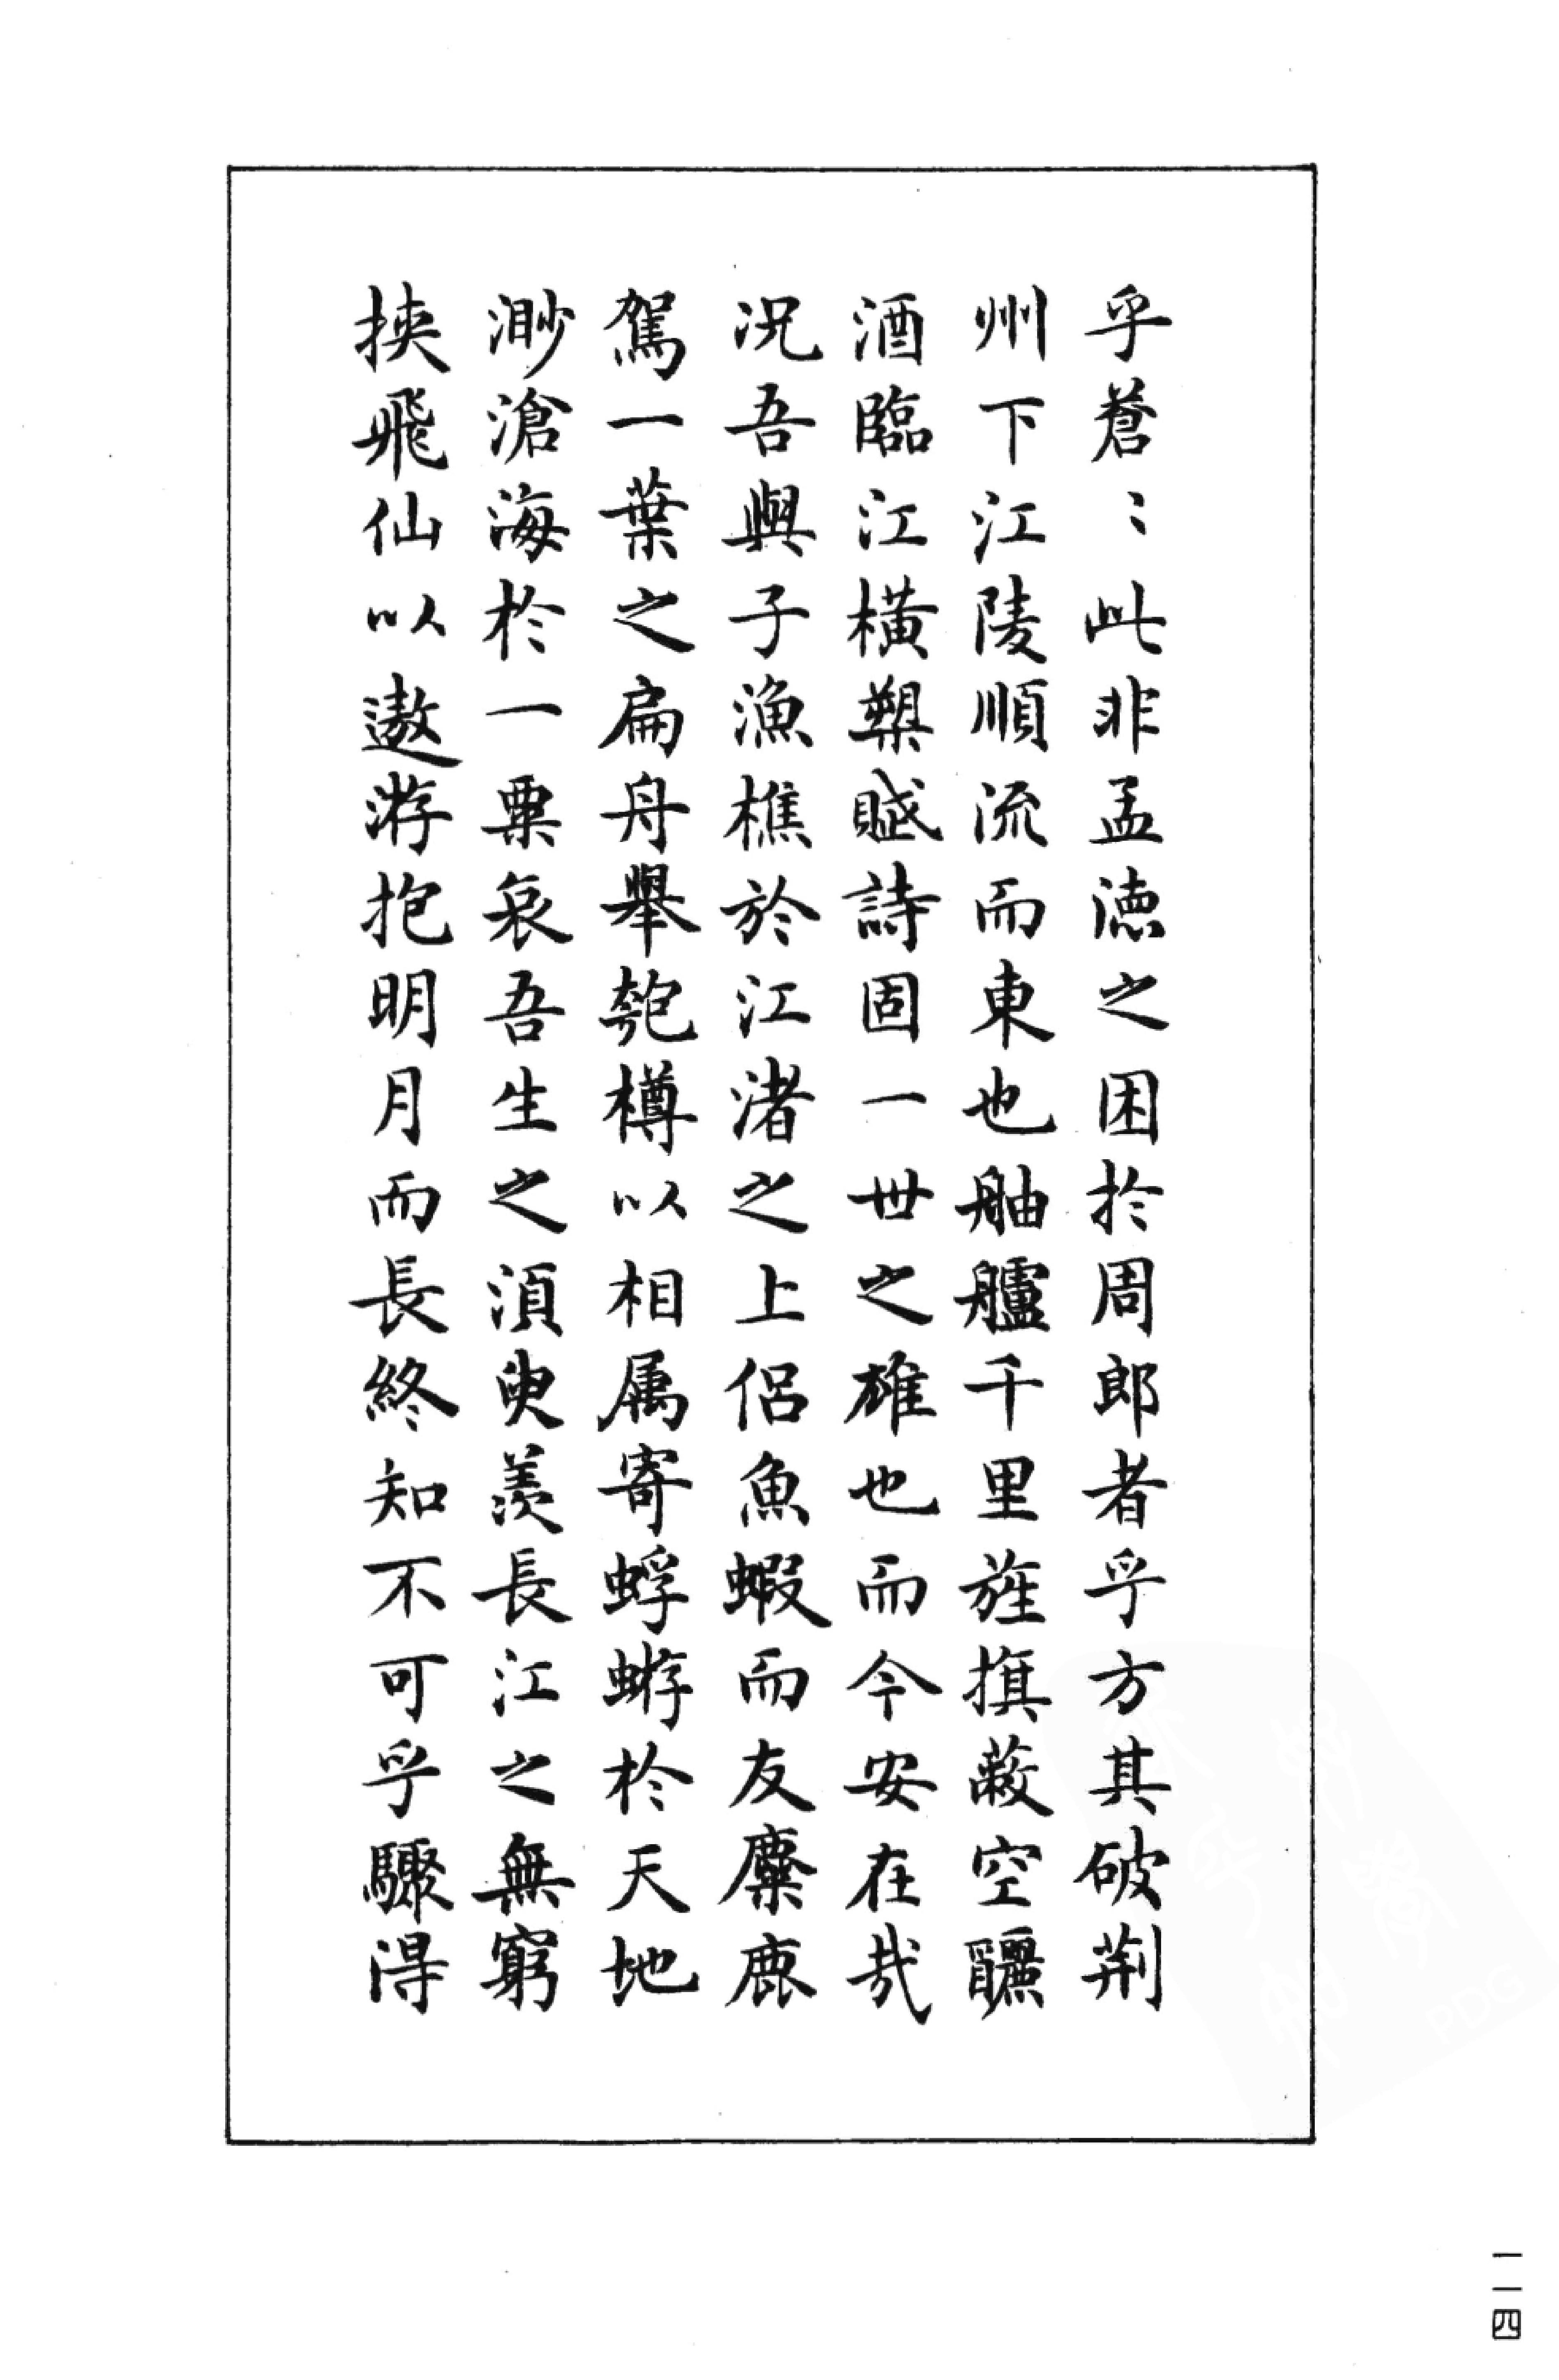 乎蒼〻此非孟德之困於周郎者乎方其破荆
州下江陵順流而東也舳艫千里旌旗蔽空釃
酒臨江橫槊賦詩固一世之雄也而今安在哉
況吾與子漁樵於江渚之上侶魚蝦而友麋鹿
駕一葉之扁舟舉匏樽以相属寄蜉蝣於天地
渺滄海於一粟哀吾生之須臾羨長江之無窮
挾飛仙以遨游抱明月而長終知不可乎驟得
一一四